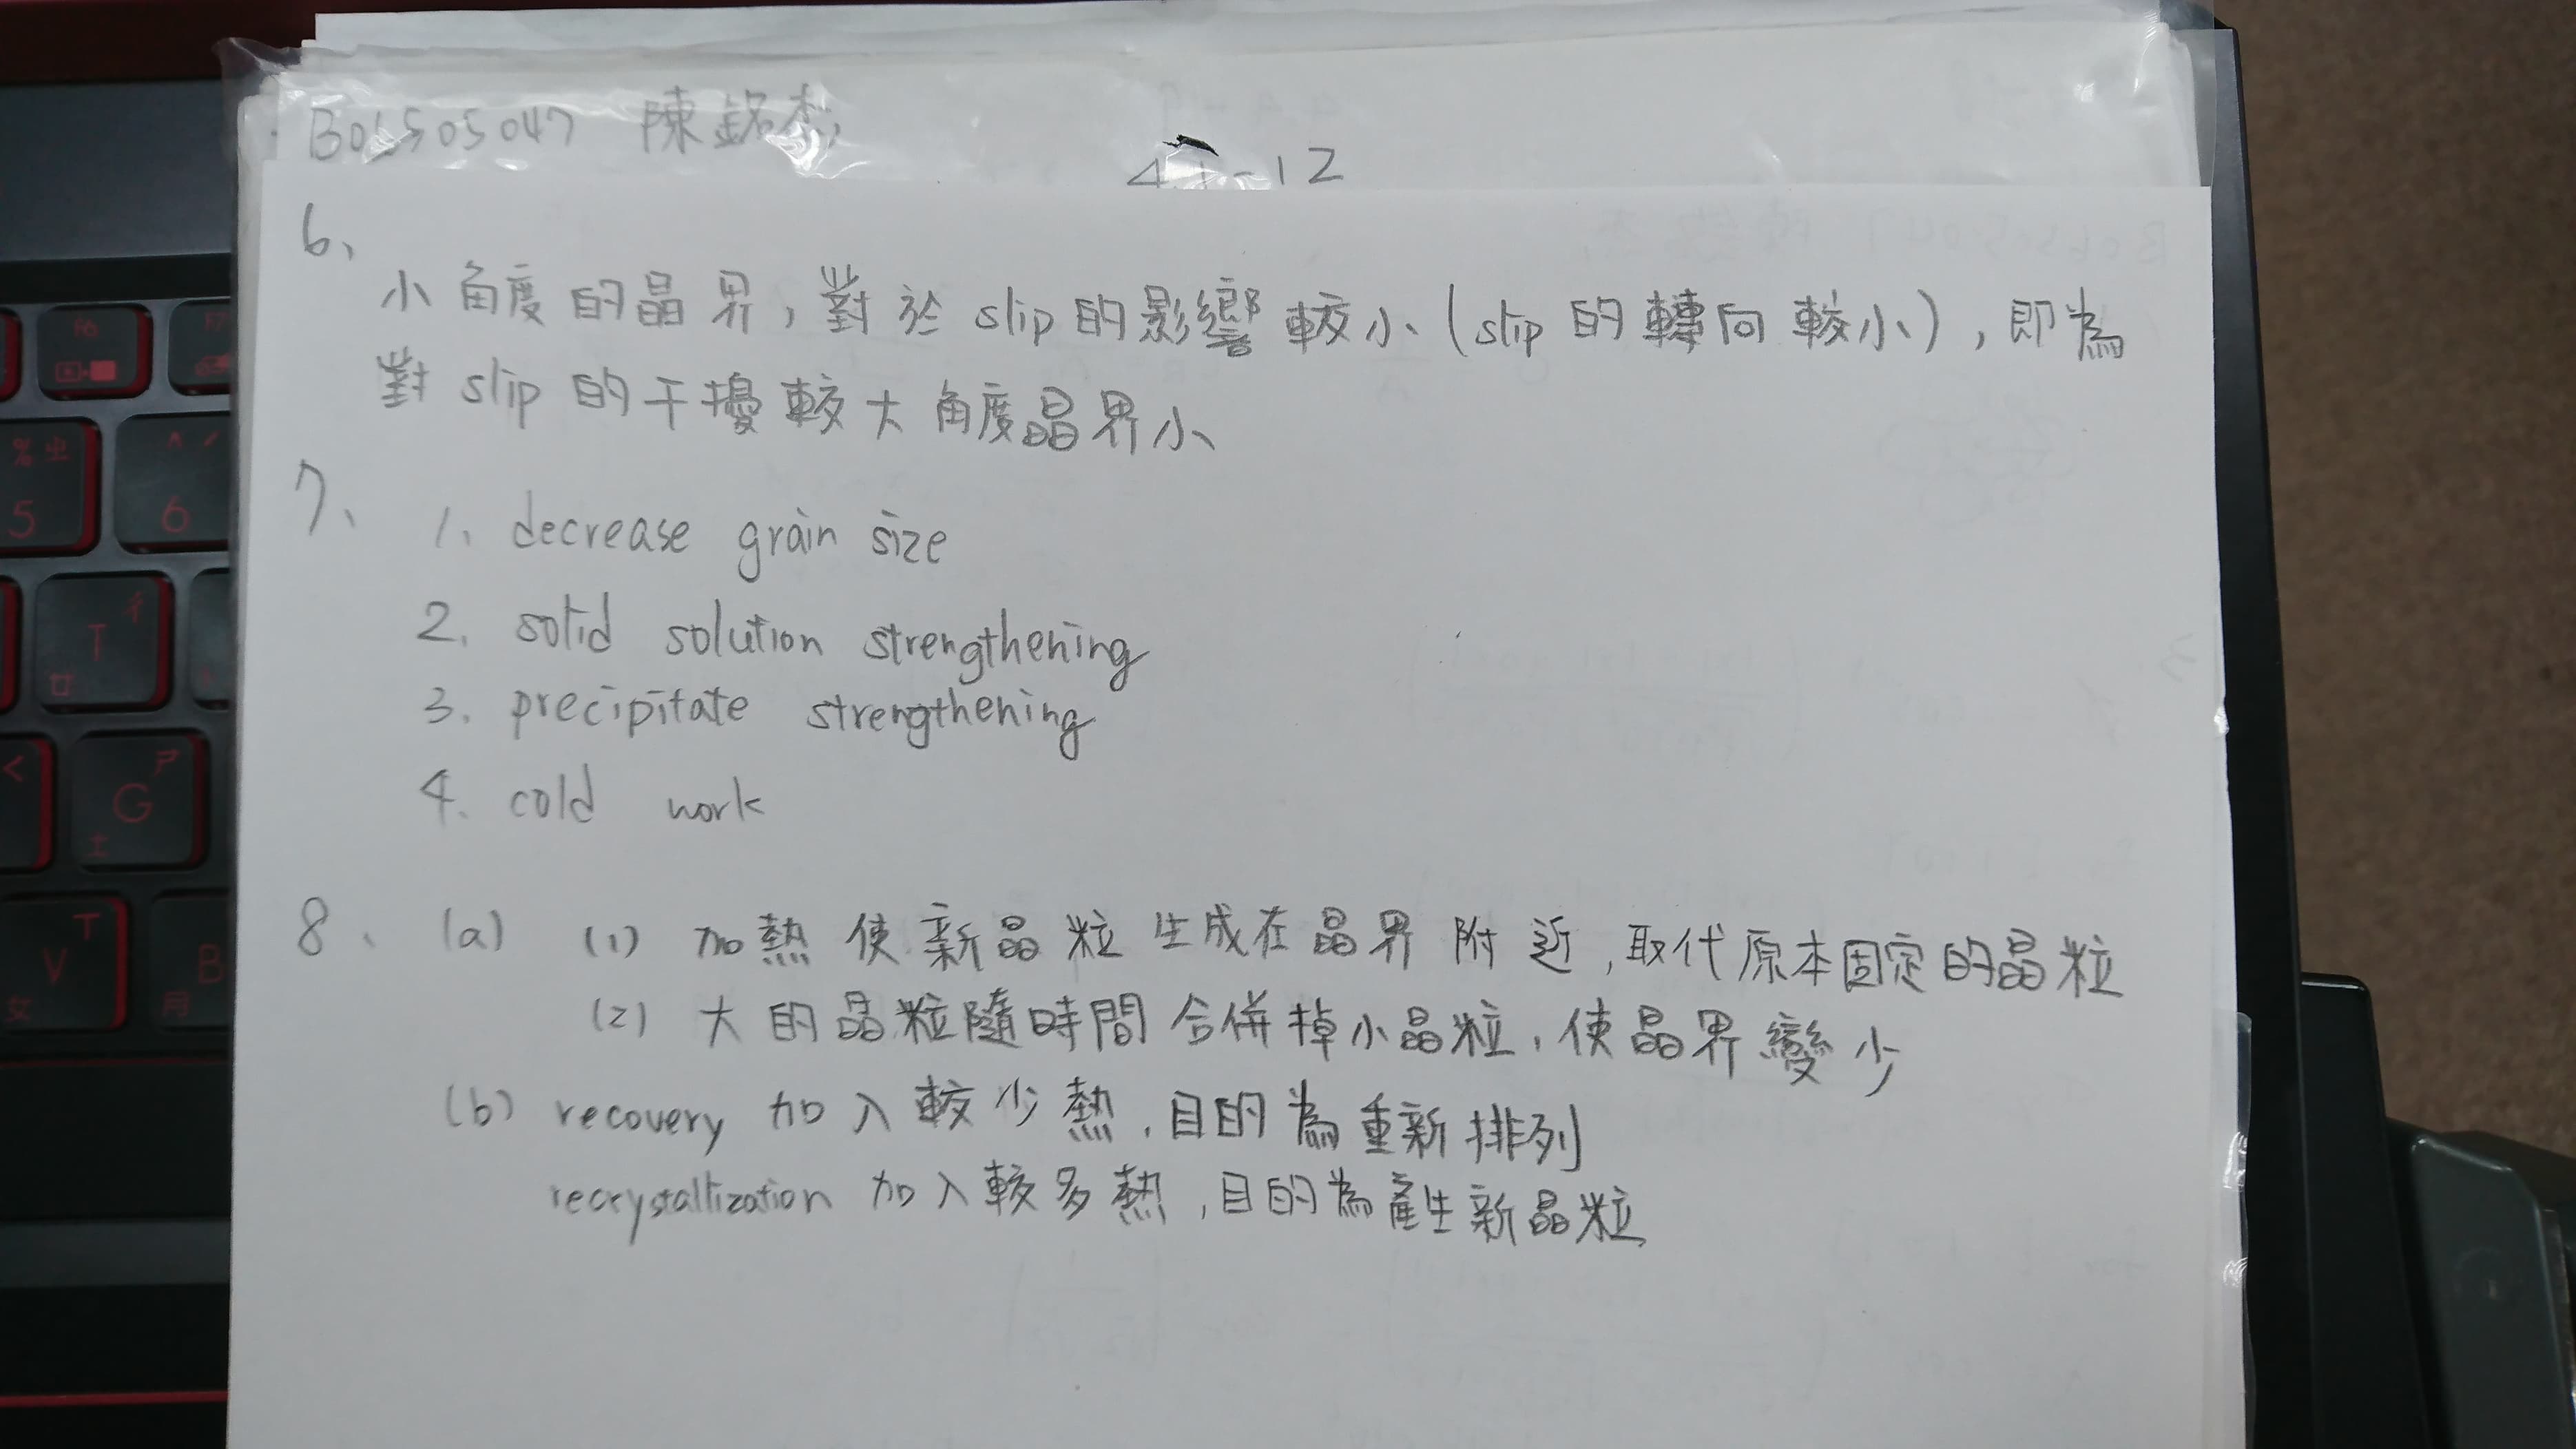 B06505047 陳銘杰
4.1-12
6、
小角度的晶界，對於 slip 的影響較小 (slip 的轉向較小)，即為
對 slip 的干擾較大角度晶界小
7、 1. decrease grain size
2. solid solution strengthening
3. precipitate strengthening
4. cold work
8、 (a) (1) 加熱使新晶粒生成在晶界附近，取代原本固定的晶粒
(2) 大的晶粒隨時間合併掉小晶粒，使晶界變少
(b) recovery 加入較少熱，目的為重新排列
recrystallization 加入較多熱，目的為產生新晶粒